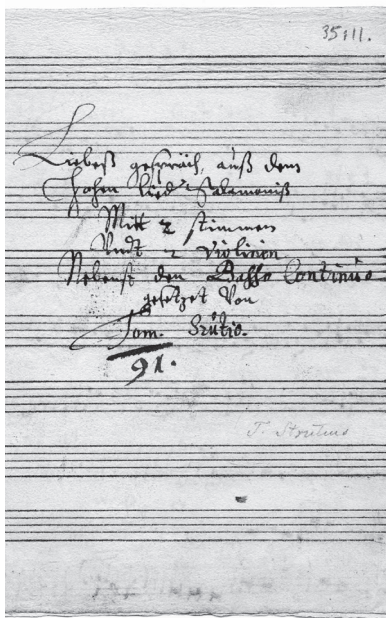 35:11.
Liebeß gespräch, auß dem
Hohen Lied Salamoniß
Mitt 2 stimmen
Undt 2 Violinen
Nebenst den Basso Continuo
gesetzet Von
Tom. Strŭtio.
91.
T. Strutius